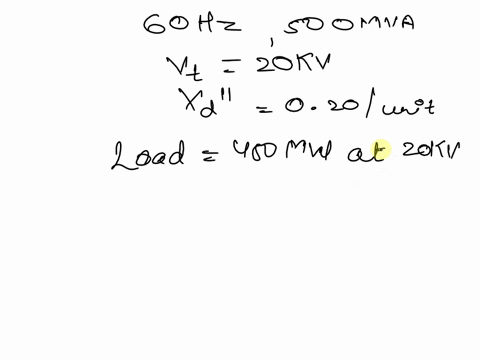 60Hz, 500MVA
Vt = 20KV
Xd" = 0.20/unit
Load = 400MW at 20KV